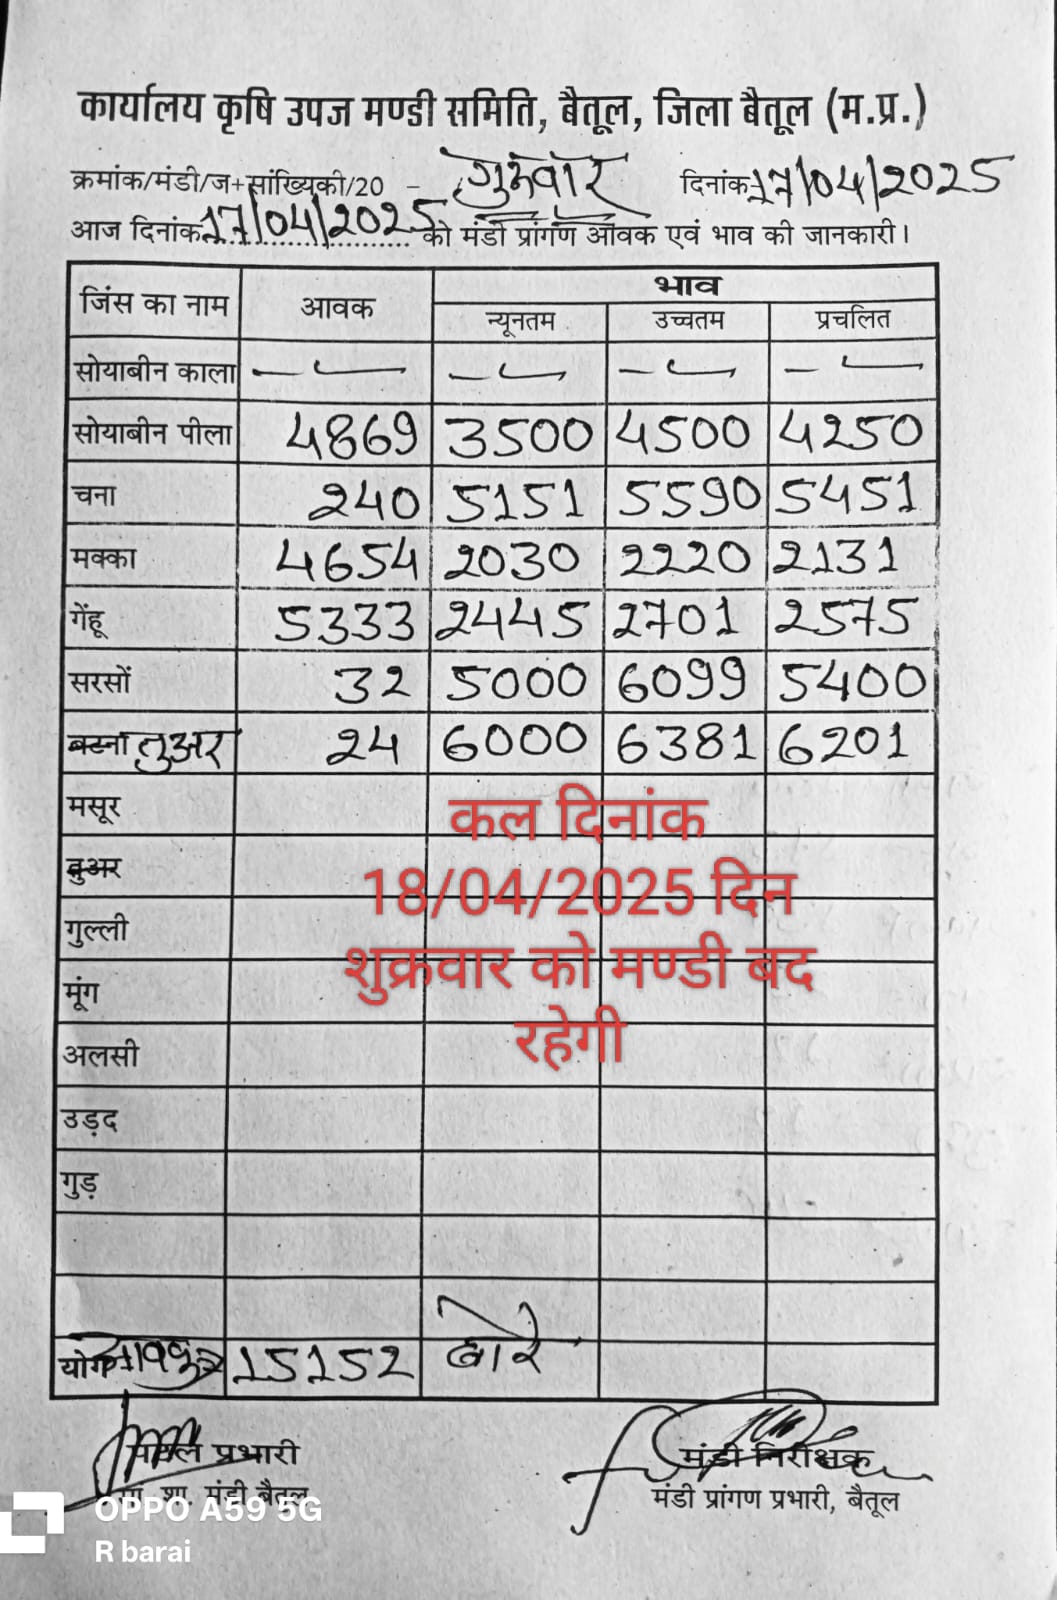 कार्यालय कृषि उपज मण्डी समिति, बैतूल, जिला बैतूल (म.प्र.)
क्रमांक/मंडी/ज+सांख्यिकी/20 - गुरूवार दिनांक 17/04/2025
आज दिनांक 17/04/2025 को मंडी प्रांगण आवक एवं भाव की जानकारी।
जिंस का नाम आवक भाव
न्यूनतम उच्चतम प्रचलित
सोयाबीन काला — — — —
सोयाबीन पीला 4869 3500 4500 4250
चना 240 5151 5590 5451
मक्का 4654 2030 2220 2131
गेंहू 5333 2445 2701 2575
सरसों 32 5000 6099 5400
बटना तुअर 24 6000 6381 6201
मसूर
तुअर
गुल्ली
मूंग
अलसी
उड़द
गुड़
कल दिनांक
18/04/2025 दिन
शुक्रवार को मण्डी बद
रहेगी
योग 15152 बोरे
प्रभारी
मंडी बैतूल
मंडी निरीक्षक
मंडी प्रांगण प्रभारी, बैतूल
OPPO A59 5G
R barai